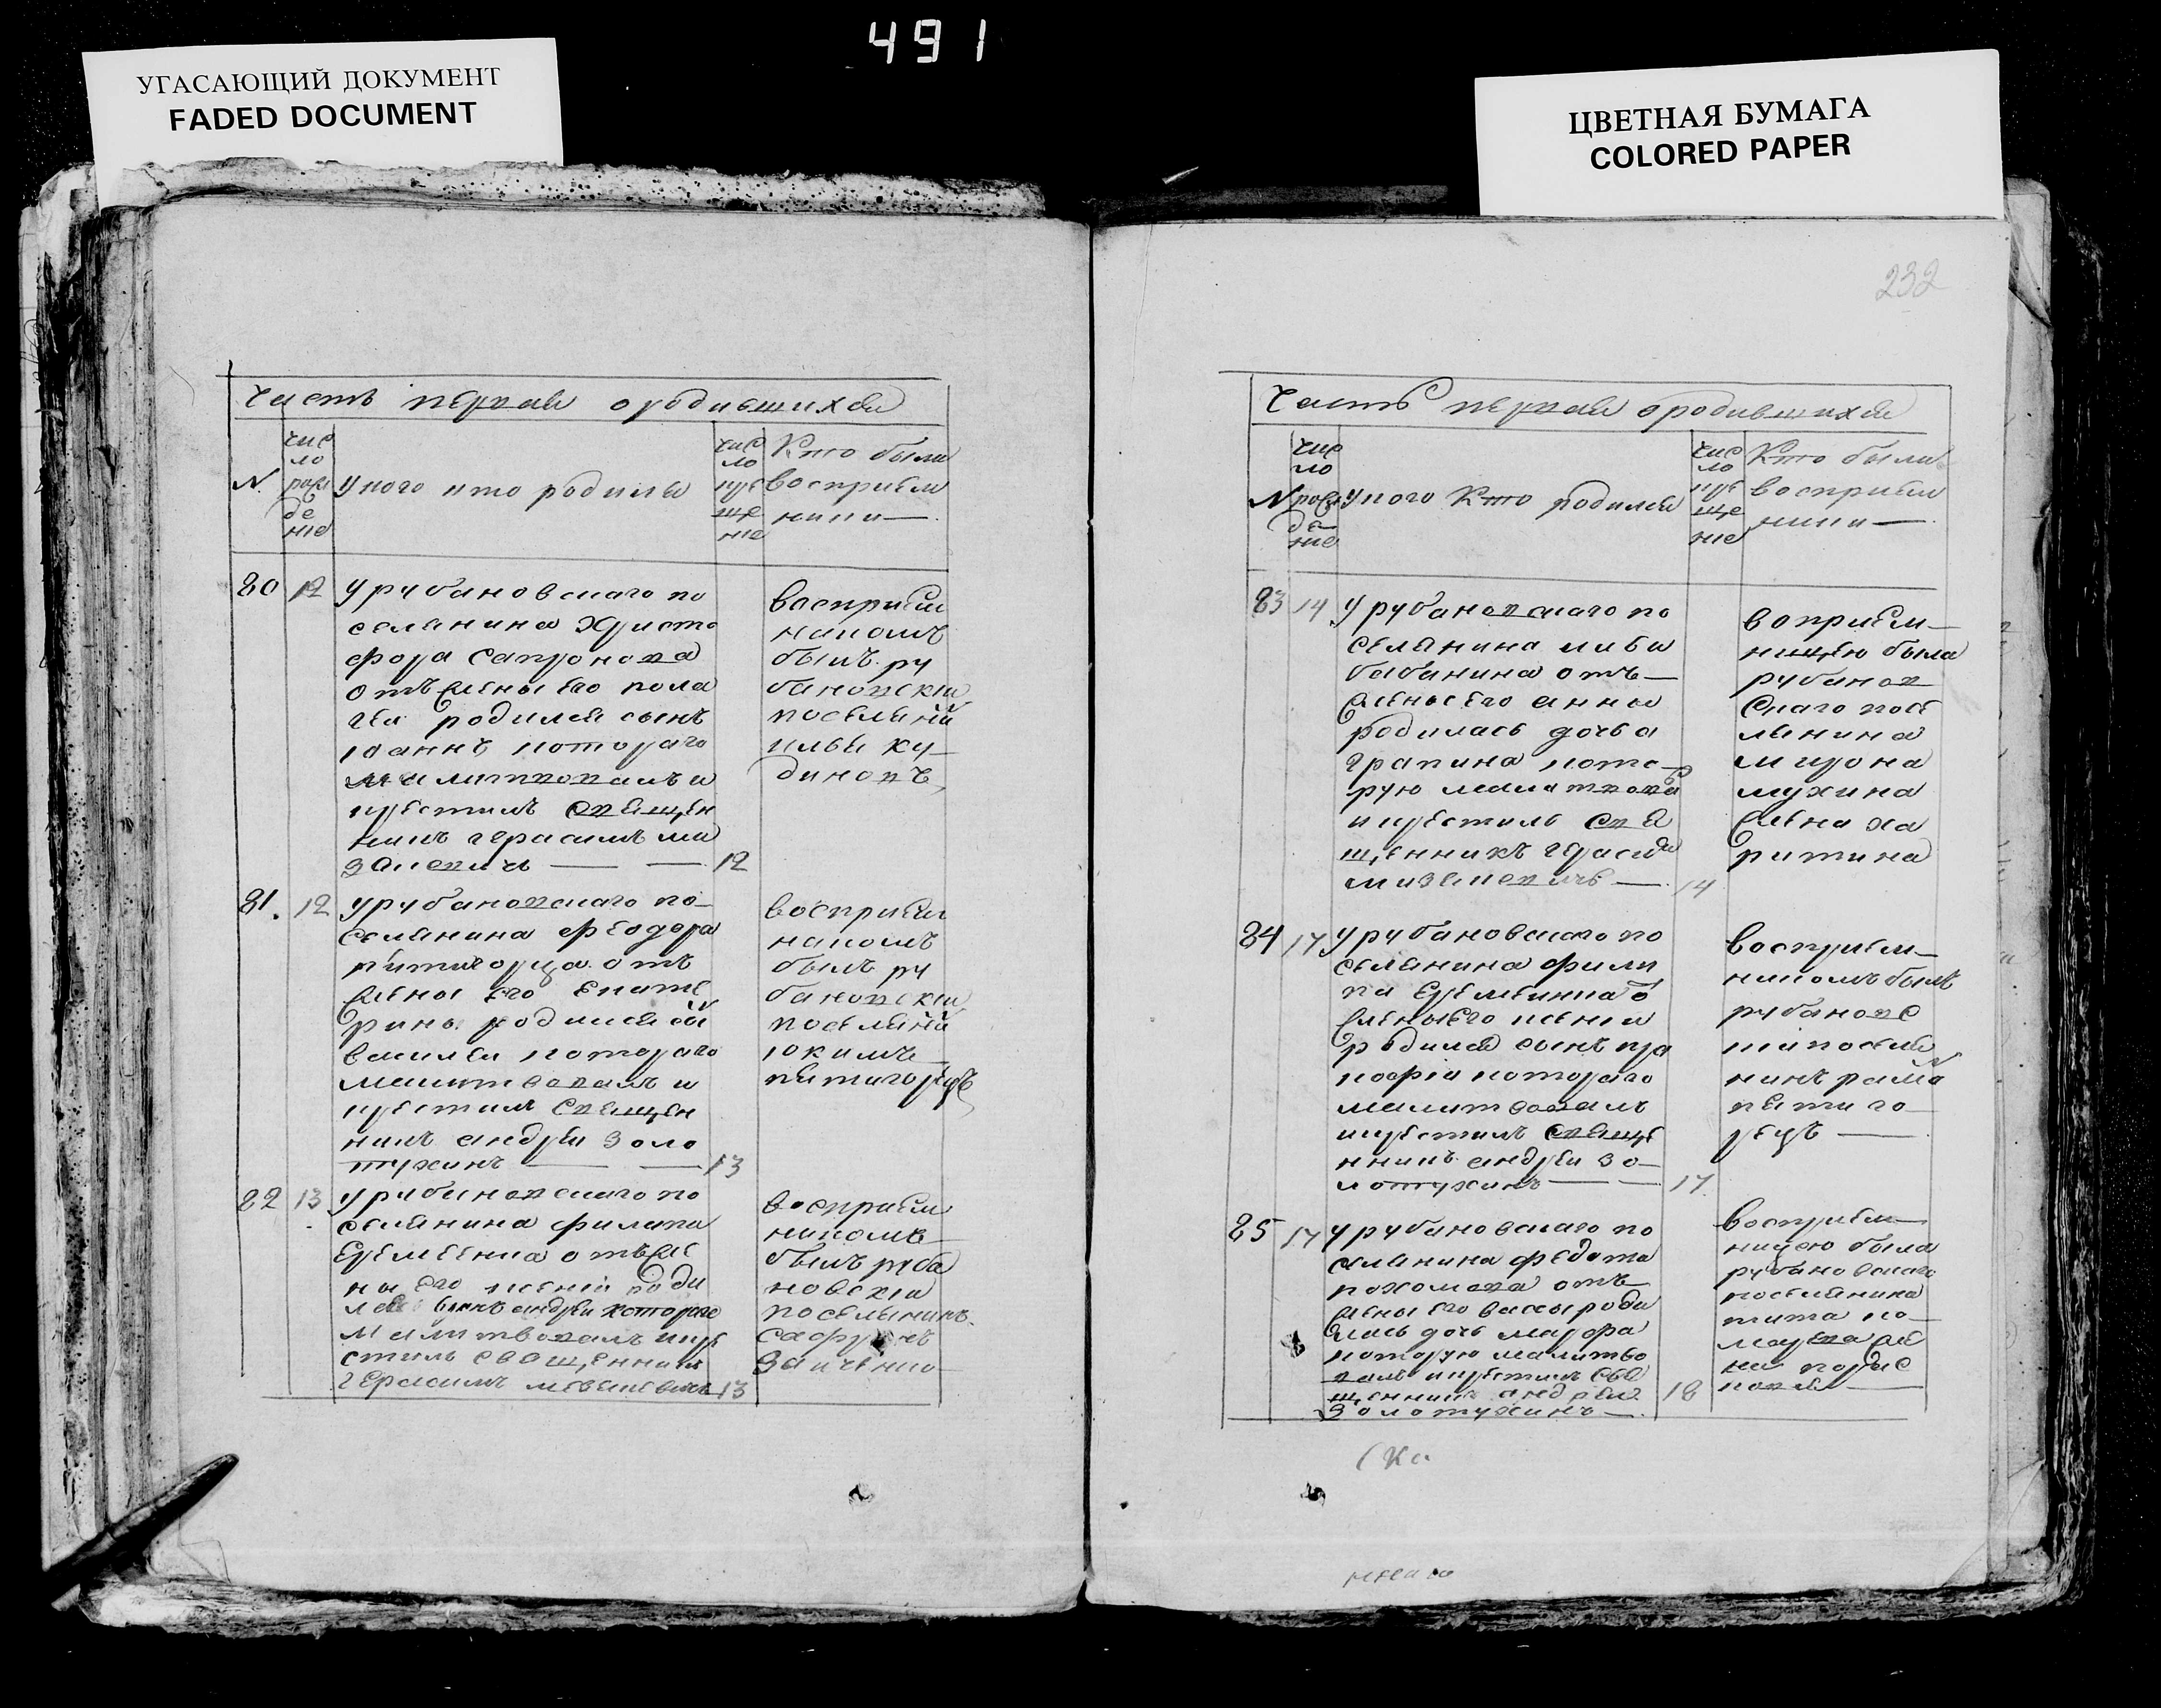 491
УГАСАЮЩИЙ ДОКУМЕНТ
FADED DOCUMENT
ЦВЕТНАЯ БУМАГА
COLORED PAPER
232
Часть первая о родившихся
N.
чис
ло
рож
де
ние
У кого кто родился
чис
ло
кре
ще
ние
Кто были
восприем
ники —
80
12
У рубановскаго по
селянина Христо
фора Сапронова
отъ жены его пела
геи родился сынъ
иоаннъ котораго
малитвовалъ и
крестилъ священ
никъ герасимъ ма
— — 12
восприем
никомъ
былъ ру
бановски
поселянинъ
кулья ку
диновъ
81.
12
У рубановскаго по
селянина Феодора
пятигорца отъ
жены его екате
рины родился сы
василеи котораго
малитвовалъ и
крестилъ священ
никъ андреи Золо
тухинъ — — 13
восприем
никомъ
былъ ру
бановски
поселянинъ
иокимъ
пятигорецъ
82
13
У рубановскаго по
селянина филипа
Еременка отъ же
ны его ксении роди
лся сынъ андреи котораго
малитвовалъ и кре
стилъ священникъ
герасимъ 13
восприем
никомъ
былъ руба
новски
поселянинъ
Заиченко
Часть первая о родившихся
N
чис
ло
рож
де
ние
У кого кто родился
чис
ло
кре
ще
ние
Кто были
восприем
ники —
83
14
У рубановскаго по
селянина
бабанина отъ
жены его анны
родилась дочь а
грапина кото
рую малитвовалъ
и крестилъ свя
щенникъ герасим
— 14
воприем
ницею была
рубанов
скаго посе
лянина
мирона
мухина
жена ха
ритина
84
17
У рубановскаго по
селянина фили
па Еременка о
жены его ксении
родился сынъ пра
кофии котораго
малитвовалъ
и крестилъ свяще
нникъ андреи зо
лотухинъ — — 17
восприем
никомъ былъ
рубановс
ки поселя
нинъ
пятиго
рецъ —
85
17
У рубановскаго по
селянина федота
пахомова отъ
жены его вассы роди
лась дочь марфа
которую малитво
валъ и крестилъ свя
щенникъ андреи
Золотухинъ — 18
восприем
ницею была
рубановскаго
поселянина
тита ко
жена